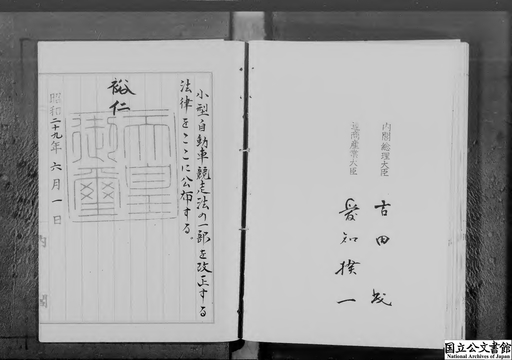 小型自動車競走法の一部を改正する
法律をここに公布する。
裕仁
天皇御璽
昭和二十九年六月一日
内閣総理大臣 吉田茂
通商産業大臣 愛知揆一
国立公文書館
National Archives of Japan